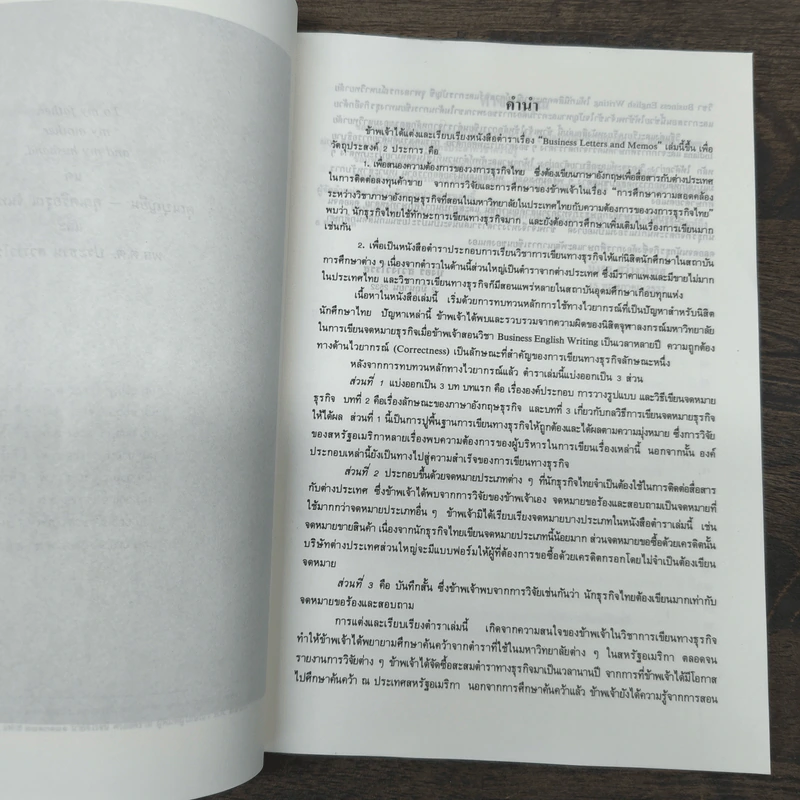 คำนำ
ข้าพเจ้าได้แต่งและเรียบเรียงหนังสือตำราเรื่อง "Business Letters and Memos" เล่มนี้ขึ้น เพื่อ
วัตถุประสงค์ 2 ประการ คือ
1. เพื่อสนองความต้องการของวงการธุรกิจไทย ซึ่งต้องเขียนภาษาอังกฤษเพื่อสื่อสารกับต่างประเทศ
ในการติดต่อลงทุนค้าขาย จากการวิจัยและการศึกษาของข้าพเจ้าในเรื่อง "การศึกษาความสอดคล้อง
ระหว่างวิชาภาษาอังกฤษธุรกิจที่สอนในมหาวิทยาลัยในประเทศไทยกับความต้องการของวงการธุรกิจไทย"
พบว่า นักธุรกิจไทยใช้ทักษะการเขียนทางธุรกิจมาก และยังต้องการศึกษาเพิ่มเติมในเรื่องการเขียนมาก
เช่นกัน
2. เพื่อเป็นหนังสือตำราประกอบการเรียนวิชาการเขียนทางธุรกิจให้แก่นิสิตนักศึกษาในสถาบัน
การศึกษาต่าง ๆ เนื่องจากตำราในด้านนี้ส่วนใหญ่เป็นตำราจากต่างประเทศ ซึ่งมีราคาแพงและมีขายไม่มาก
ในประเทศไทย และวิชาการเขียนทางธุรกิจก็มีสอนแพร่หลายในสถาบันอุดมศึกษาเกือบทุกแห่ง
เนื้อหาในหนังสือเล่มนี้ เริ่มด้วยการทบทวนหลักการใช้ทางไวยากรณ์ที่เป็นปัญหาสำหรับนิสิต
นักศึกษาไทย ปัญหาเหล่านี้ ข้าพเจ้าได้พบและรวบรวมจากความผิดของนิสิตจุฬาลงกรณ์มหาวิทยาลัย
ในการเขียนจดหมายธุรกิจเมื่อข้าพเจ้าสอนวิชา Business English Writing เป็นเวลาหลายปี ความถูกต้อง
ทางด้านไวยากรณ์ (Correctness) เป็นลักษณะที่สำคัญของการเขียนทางธุรกิจลักษณะหนึ่ง
หลังจากการทบทวนหลักทางไวยากรณ์แล้ว ตำราเล่มนี้แบ่งออกเป็น 3 ส่วน
ส่วนที่ 1 แบ่งออกเป็น 3 บท บทแรก คือ เรื่ององค์ประกอบ การวางรูปแบบ และวิธีเขียนจดหมาย
ธุรกิจ บทที่ 2 คือเรื่องลักษณะของภาษาอังกฤษธุรกิจ และบทที่ 3 เกี่ยวกับกลวิธีการเขียนจดหมายธุรกิจ
ให้ได้ผล ส่วนที่ 1 นี้เป็นการปูพื้นฐานการเขียนทางธุรกิจให้ถูกต้องและได้ผลตามความมุ่งหมาย ซึ่งการวิจัย
ของสหรัฐอเมริกาหลายเรื่องพบความต้องการของผู้บริหารในการเขียนเรื่องเหล่านี้ นอกจากนั้น องค์
ประกอบเหล่านี้ยังเป็นทางไปสู่ความสำเร็จของการเขียนทางธุรกิจ
ส่วนที่ 2 ประกอบขึ้นด้วยจดหมายประเภทต่าง ๆ ที่นักธุรกิจไทยจำเป็นต้องใช้ในการติดต่อสื่อสาร
กับต่างประเทศ ซึ่งข้าพเจ้าได้พบจากการวิจัยของข้าพเจ้าเอง จดหมายขอร้องและสอบถามเป็นจดหมายที่
ใช้มากกว่าจดหมายประเภทอื่น ๆ ข้าพเจ้ามิได้เรียบเรียงจดหมายบางประเภทในหนังสือตำราเล่มนี้ เช่น
จดหมายขายสินค้า เนื่องจากนักธุรกิจไทยเขียนจดหมายประเภทนี้น้อยมาก ส่วนจดหมายขอซื้อด้วยเครดิตนั้น
บริษัทต่างประเทศส่วนใหญ่จะมีแบบฟอร์มให้ผู้ที่ต้องการขอซื้อด้วยเครดิตกรอกโดยไม่จำเป็นต้องเขียน
จดหมาย
ส่วนที่ 3 คือ บันทึกสั้น ซึ่งข้าพเจ้าพบจากการวิจัยเช่นกันว่า นักธุรกิจไทยต้องเขียนมากเท่ากับ
จดหมายขอร้องและสอบถาม
การแต่งและเรียบเรียงตำราเล่มนี้ เกิดจากความสนใจของข้าพเจ้าในวิชาการเขียนทางธุรกิจ
ทำให้ข้าพเจ้าได้พยายามศึกษาค้นคว้าจากตำราที่ใช้ในมหาวิทยาลัยต่าง ๆ ในสหรัฐอเมริกา ตลอดจน
รายงานการวิจัยต่าง ๆ ข้าพเจ้าได้จัดซื้อสะสมตำราทางธุรกิจมาเป็นเวลานานปี จากการที่ข้าพเจ้าได้มีโอกาส
ไปศึกษาค้นคว้า ณ ประเทศสหรัฐอเมริกา นอกจากการศึกษาค้นคว้าแล้ว ข้าพเจ้ายังได้ความรู้จากการสอน